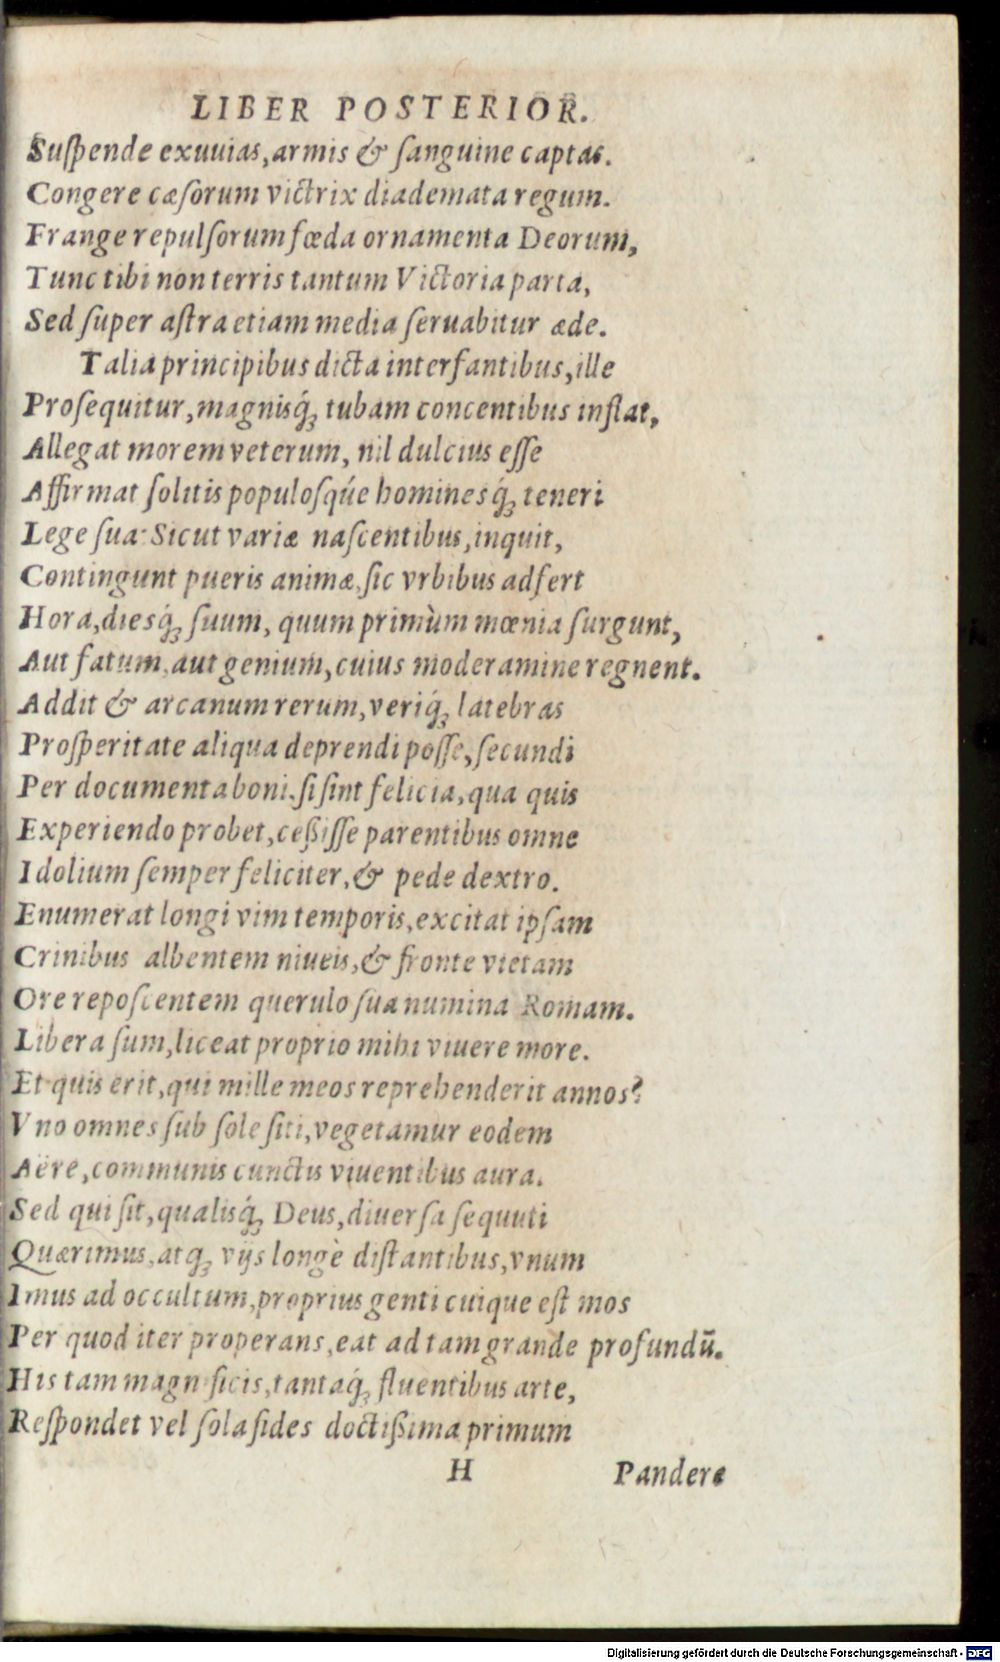 LIBER POSTERIOR.
Suſpende exuuias, armis & ſanguine captas.
Congere cæſorum victrix diademata regum.
Frange repulſorum fœda ornamenta Deorum,
Tunc tibi non terris tantum Victoria parta,
Sed ſuper aſtra etiam media ſeruabitur æde.
Talia principibus dicta interfantibus, ille
Proſequitur, magniſq́ꝫ tubam concentibus inflat,
Allegat morem veterum, nil dulcius eſſe
Affirmat ſolitis populoſq́ue hominesq́ꝫ teneri
Lege ſua: Sicut variæ naſcentibus, inquit,
Contingunt pueris animæ, ſic vrbibus adfert
Hora, diesq́ꝫ ſuum, quum primùm mœnia ſurgunt,
Aut fatum, aut genium, cuius moderamine regnent.
Addit & arcanum rerum, veriq́ꝫ latebras
Proſperitate aliqua deprendi poſſe, ſecundi
Per documenta boni, ſi ſint felicia, qua quis
Experiendo probet, ceßiſſe parentibus omne
Idolium ſemper feliciter, & pede dextro.
Enumerat longi vim temporis, excitat ipſam
Crinibus albentem niueis, & fronte vietam
Ore repoſcentem querulo ſua numina Romam.
Libera ſum, liceat proprio mihi viuere more.
Et quis erit, qui mille meos reprehenderit annos?
Vno omnes ſub ſole ſiti, vegetamur eodem
Aëre, communis cunctis viuentibus aura.
Sed qui ſit, qualisq́ꝫ Deus, diuerſa ſequuti
Quærimus, atqꝫ vijs longè diſtantibus, vnum
Imus ad occultum, proprius genti cuique eſt mos
Per quod iter properans, eat ad tam grande profundū.
His tam magnificis, tantaq́ꝫ fluentibus arte,
Reſpondet vel ſola fides doctißima primum
H Pandere
Digitalisierung gefördert durch die Deutsche Forschungsgemeinschaft - DFG